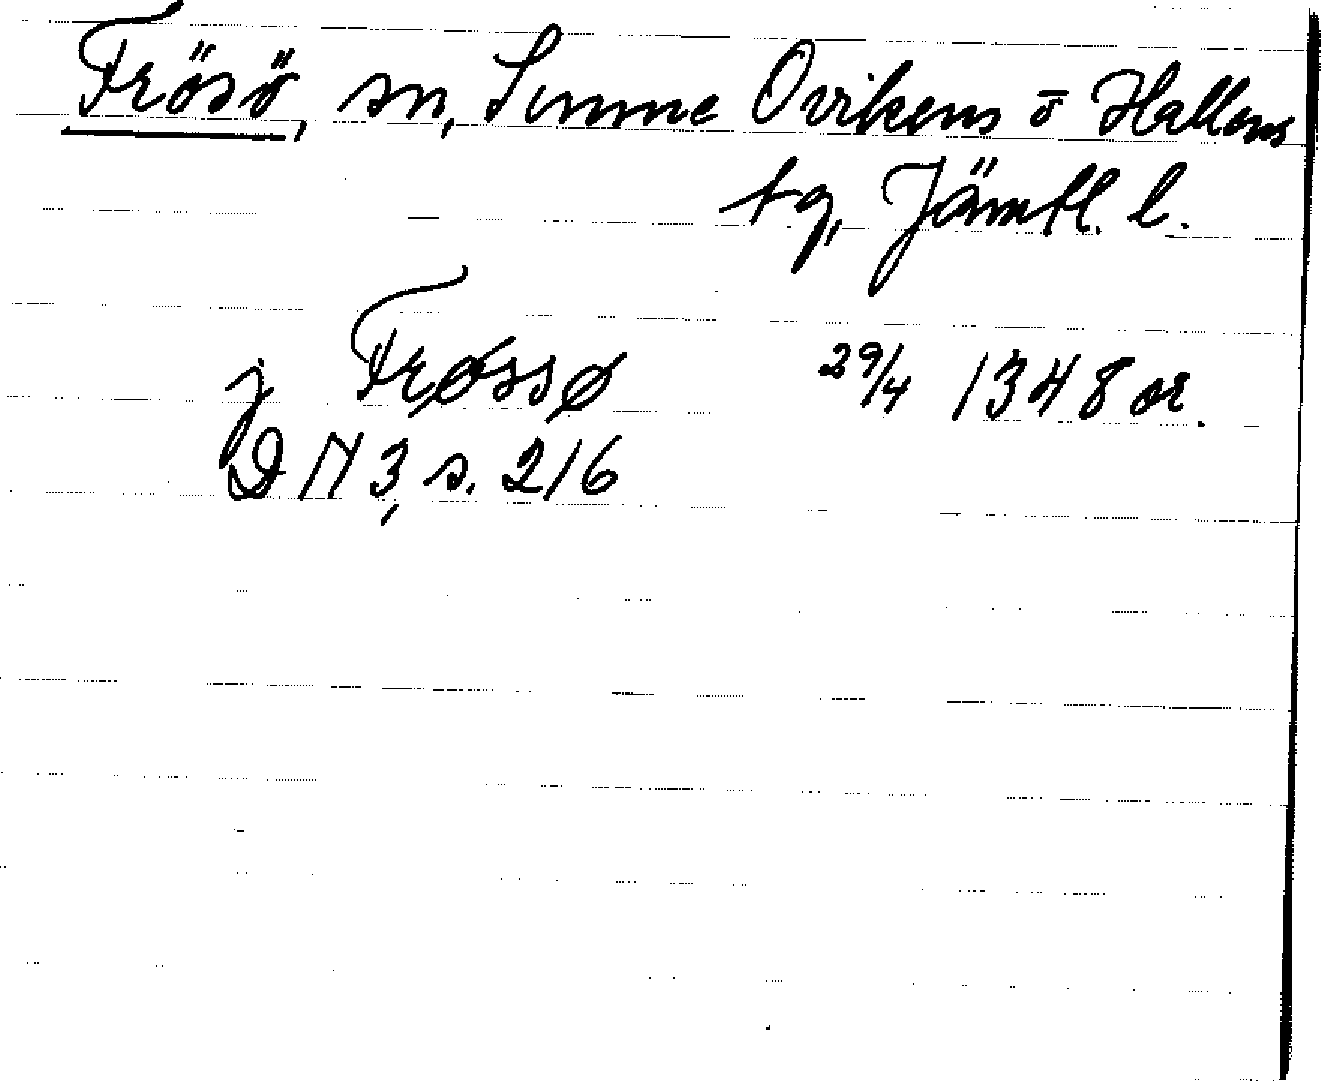 Frösö, sn, Sunne Ovikens o Hallens
tg, Jämtl. l.
j Frøssø 29/4 1348 or.
DN 3, s. 216